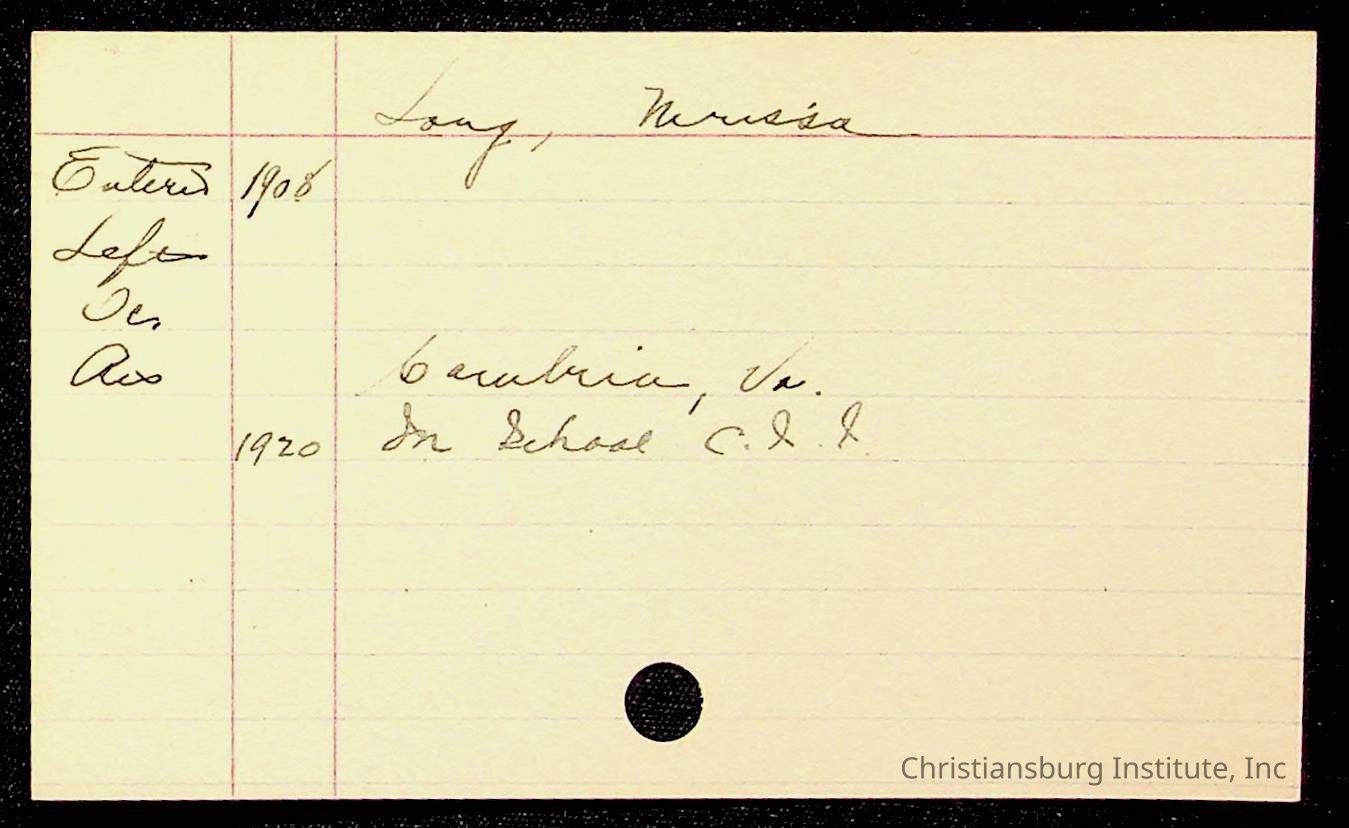 Long, Nerissa
Entered 1908
Left
Oc.
Res
Cambria, Va.
1920 In School C. I. I.
Christiansburg Institute, Inc